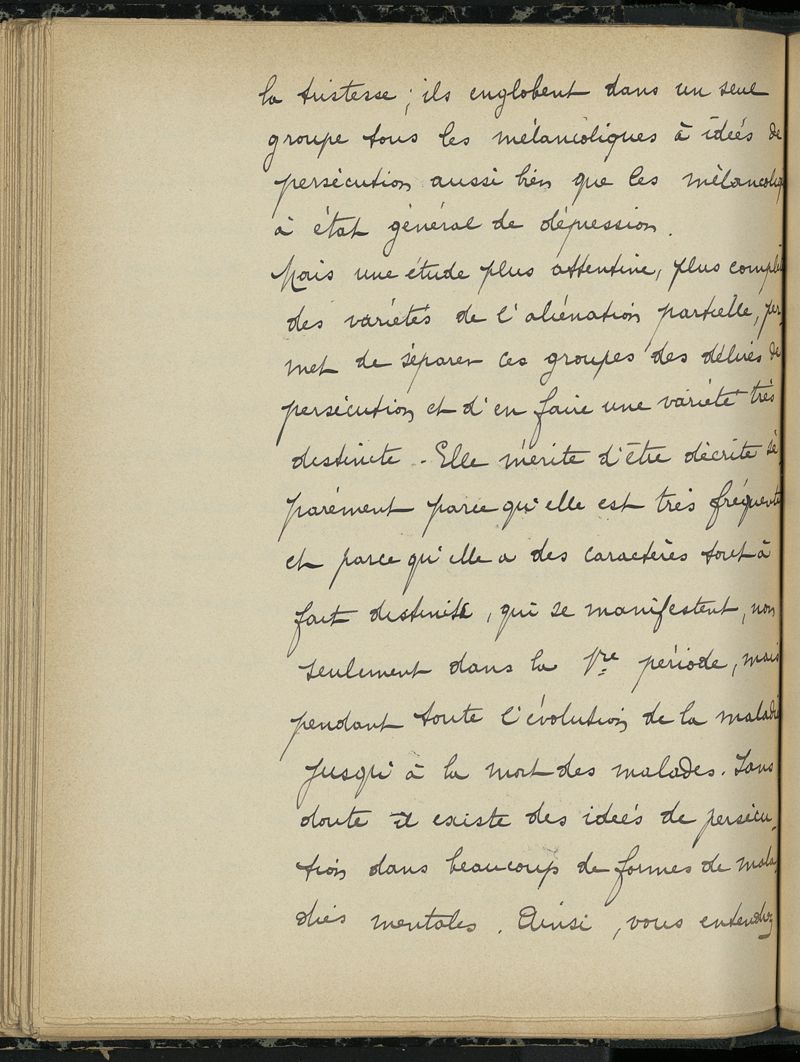 la tristesse ; ils englobent dans un seul
groupe tous les mélancoliques à idées de
persécution aussi bien que les mélancoliq
à état général de dépression.
Mais une étude plus attentive, plus complè
des variétés de l'aliénation partielle, per-
met de séparer ces groupes des délires de
persécution et d'en faire une variété très
distincte. Elle mérite d'être décrite sé-
parément parce qu'elle est très fréquente
et parce qu'elle a des caractères tout à
fait distincts, qui se manifestent, non
seulement dans la 1re période, mais
pendant toute l'évolution de la maladi
jusqu'à la mort des malades. Sans
doute il existe des idées de persécu-
tion dans beaucoup de formes de mala-
dies mentales. Ainsi, vous entendrez